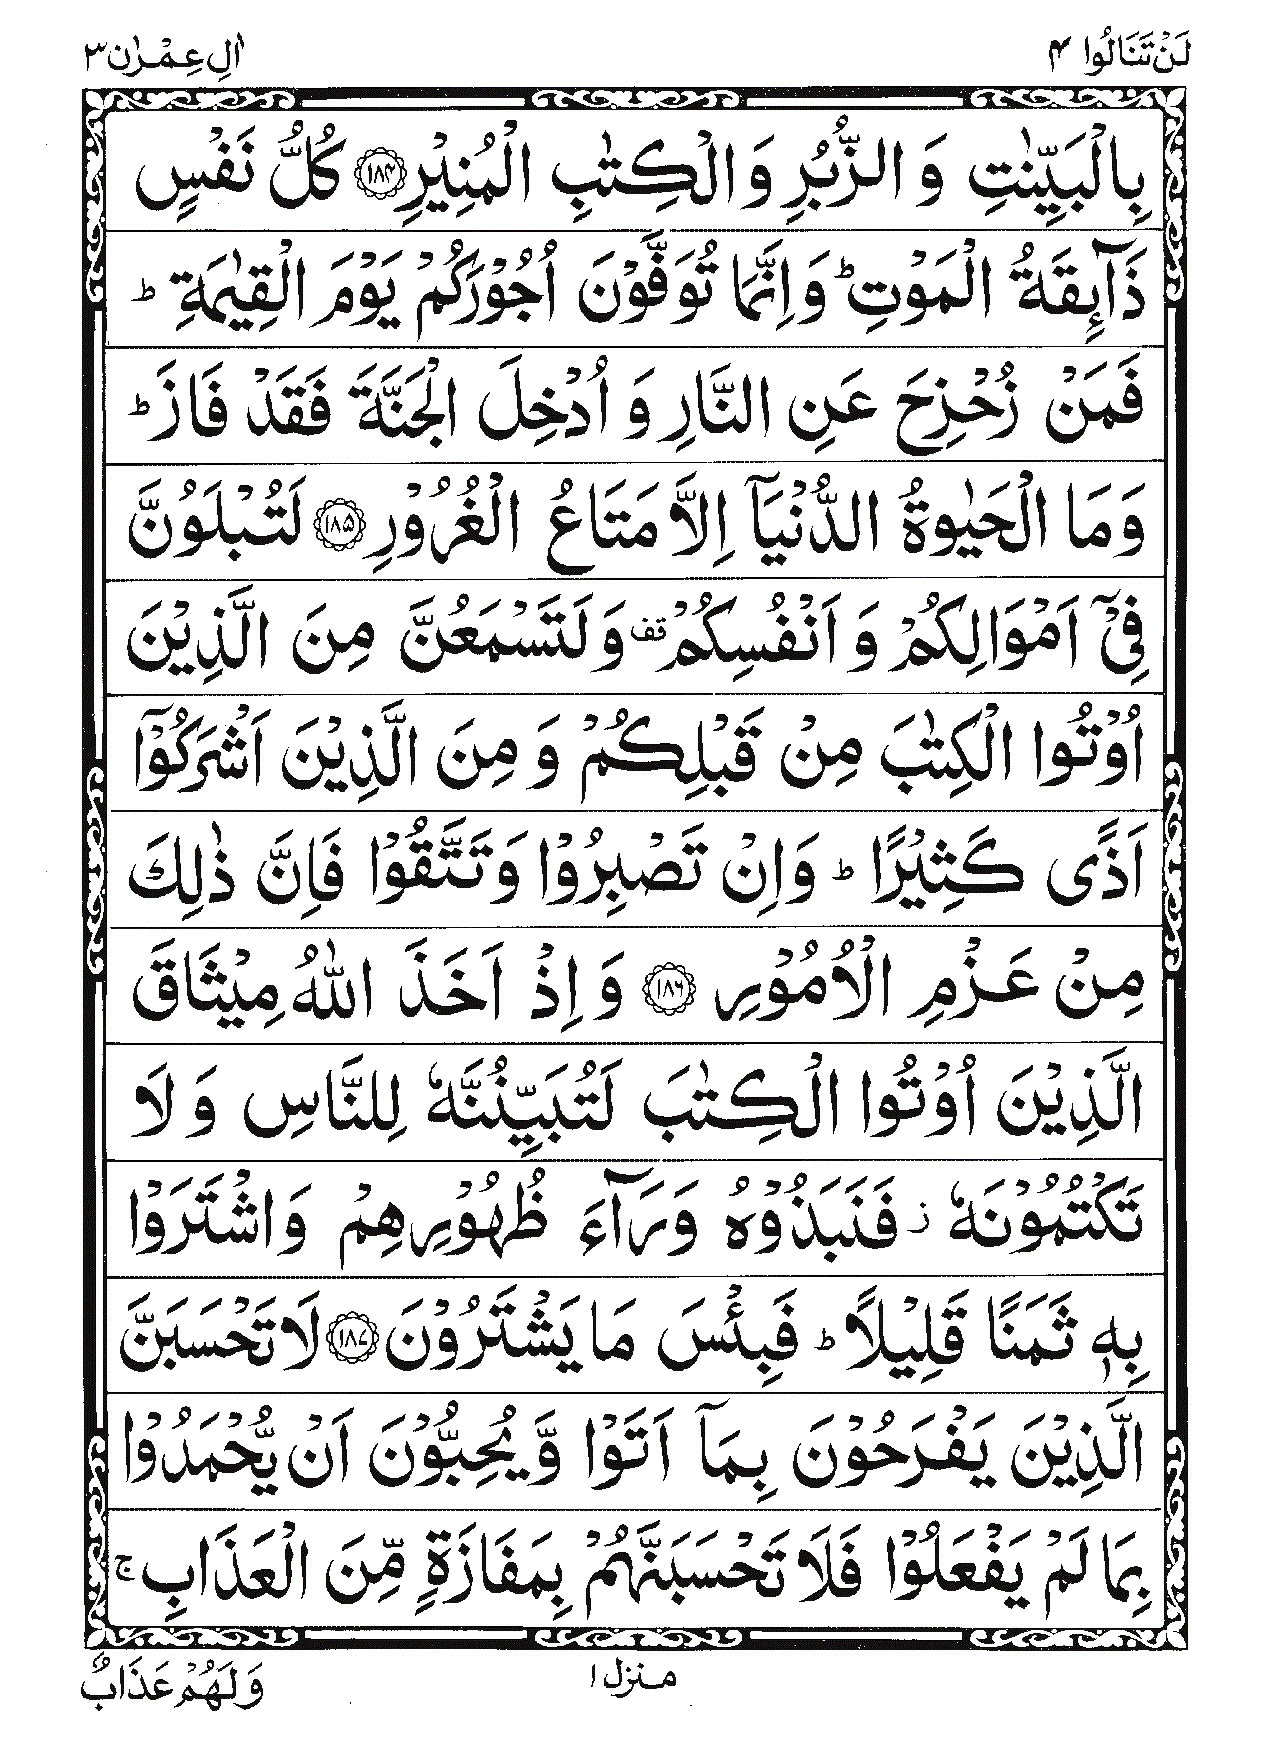 لَنْ تَنَالُوا ۴
اٰلِ عِمْرٰن ۳
بِالْبَيِّنٰتِ وَ الزُّبُرِ وَ الْكِتٰبِ الْمُنِيْرِ ﴿۱۸۴﴾ كُلُّ نَفْسٍ
ذَآئِقَةُ الْمَوْتِ ؕ وَ اِنَّمَا تُوَفَّوْنَ اُجُوْرَكُمْ يَوْمَ الْقِيٰمَةِ ؕ
فَمَنْ زُحْزِحَ عَنِ النَّارِ وَ اُدْخِلَ الْجَنَّةَ فَقَدْ فَازَ ؕ
وَ مَا الْحَيٰوةُ الدُّنْيَاۤ اِلَّا مَتَاعُ الْغُرُوْرِ ﴿۱۸۵﴾ لَتُبْلَوُنَّ
فِيْۤ اَمْوَالِكُمْ وَ اَنْفُسِكُمْ قف وَ لَتَسْمَعُنَّ مِنَ الَّذِيْنَ
اُوْتُوا الْكِتٰبَ مِنْ قَبْلِكُمْ وَ مِنَ الَّذِيْنَ اَشْرَكُوْۤا
اَذًى كَثِيْرًا ؕ وَ اِنْ تَصْبِرُوْا وَ تَتَّقُوْا فَاِنَّ ذٰلِكَ
مِنْ عَزْمِ الْاُمُوْرِ ﴿۱۸۶﴾ وَ اِذْ اَخَذَ اللّٰهُ مِيْثَاقَ
الَّذِيْنَ اُوْتُوا الْكِتٰبَ لَتُبَيِّنُنَّهٗ لِلنَّاسِ وَ لَا
تَكْتُمُوْنَهٗ ز فَنَبَذُوْهُ وَرَآءَ ظُهُوْرِهِمْ وَ اشْتَرَوْا
بِهٖ ثَمَنًا قَلِيْلًا ؕ فَبِئْسَ مَا يَشْتَرُوْنَ ﴿۱۸۷﴾ لَا تَحْسَبَنَّ
الَّذِيْنَ يَفْرَحُوْنَ بِمَاۤ اَتَوْا وَّ يُحِبُّوْنَ اَنْ يُّحْمَدُوْا
بِمَا لَمْ يَفْعَلُوْا فَلَا تَحْسَبَنَّهُمْ بِمَفَازَةٍ مِّنَ الْعَذَابِ ۚ
منزل ۱
وَ لَهُمْ عَذَابٌ